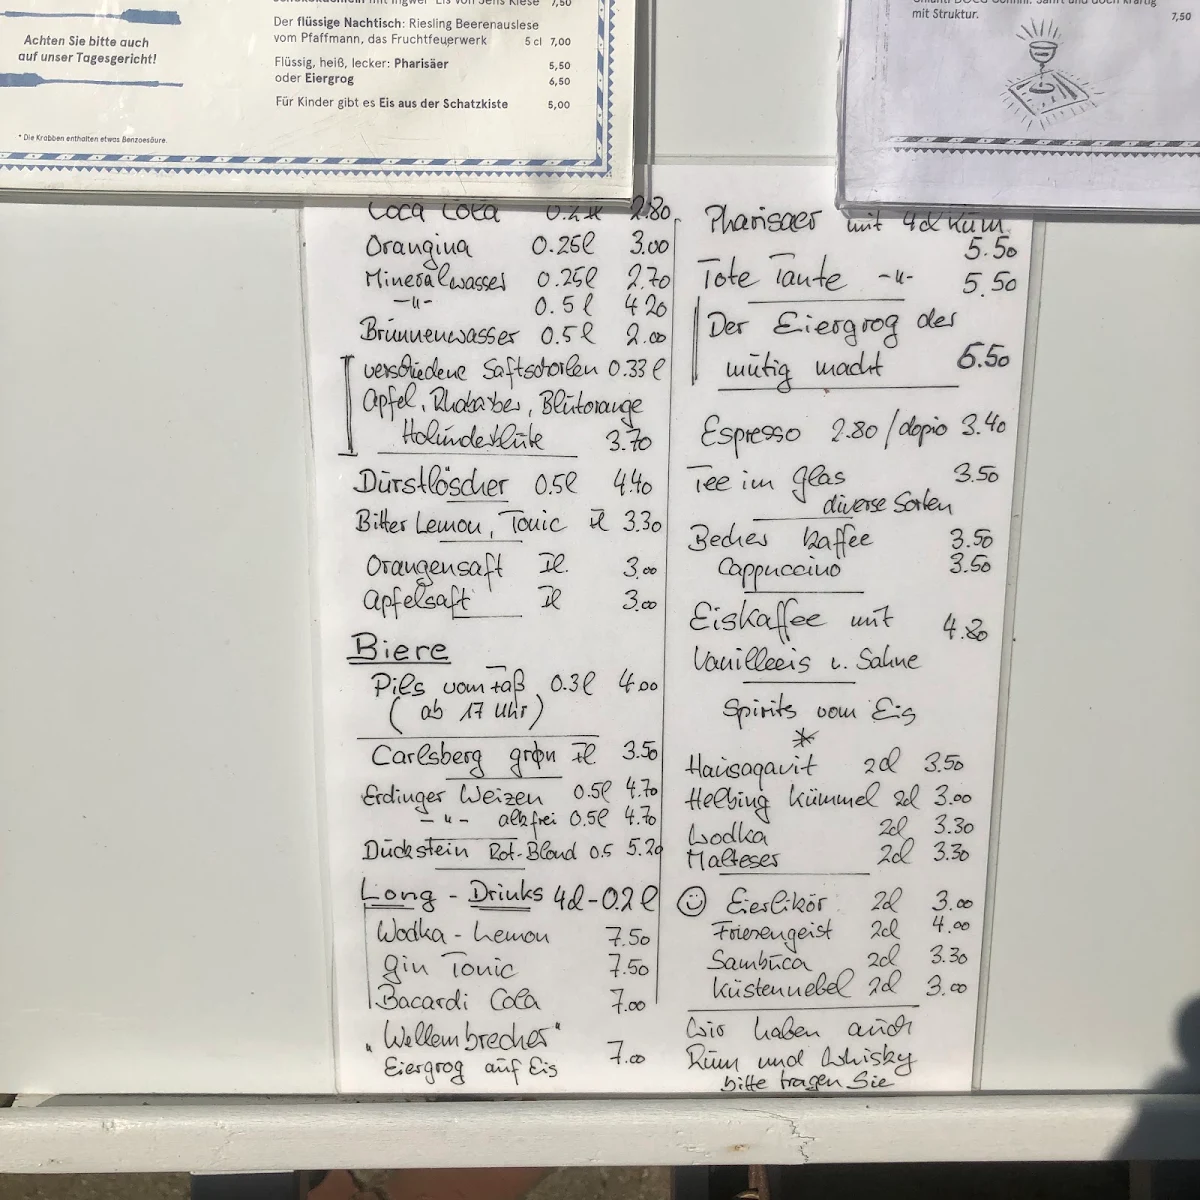 Eis von Jens Kiese 7,50
Der flüssige Nachtisch: Riesling Beerenauslese
vom Pfaffmann, das Fruchtfeuerwerk 5 cl 7,00
Flüssig, heiß, lecker: Pharisäer 5,50
oder Eiergrog 6,50
Für Kinder gibt es Eis aus der Schatzkiste 5,00
Achten Sie bitte auch
auf unser Tagesgericht!
* Die Krabben enthalten etwas Benzoesäure.
mit Struktur. 7,50
Coca Cola 2.80
Orangina 0.25l 3.00
Mineralwasser 0.25l 2.70
-"- 0.5l 4.20
Brunnenwasser 0.5l 2.00
verschiedene Saftschorlen 0.33l
Apfel, Rhabarber, Blutorange
Holunderblüte 3.70
Durstlöscher 0.5l 4.40
Bitter Lemon, Tonic Fl 3.30
Orangensaft Fl. 3.00
Apfelsaft Fl 3.00
Biere
Pils vom Faß 0.3l 4.00
(ab 17 Uhr)
Carlsberg grøn Fl. 3.50
Erdinger Weizen 0.5l 4.70
-"- alkfrei 0.5l 4.70
Duckstein Rot-Blond 0.5 5.20
Long-Drinks 4cl-0.2l
Wodka-Lemon 7.50
Gin Tonic 7.50
Bacardi Cola 7.00
„Wellenbrecher"
Eiergrog auf Eis 7.00
Pharisaer mit 4cl Rum
5.50
Tote Tante -"- 5.50
Der Eiergrog der
mutig macht 6.50
Espresso 2.80/dopio 3.40
Tee im Glas 3.50
diverse Sorten
Becher Kaffee 3.50
Cappuccino 3.50
Eiskaffee mit 4.80
Vanilleeis u. Sahne
Spirits vom Eis
*
Hausaqavit 2cl 3.50
Helbing Kümmel 2cl 3.00
Wodka 2cl 3.30
Malteser 2cl 3.30
Eierlikör 2cl 3.00
Friesengeist 2cl 4.00
Sambuca 2cl 3.30
Küstennebel 2cl 3.00
Wir haben auch
Rum und Whisky
bitte fragen Sie